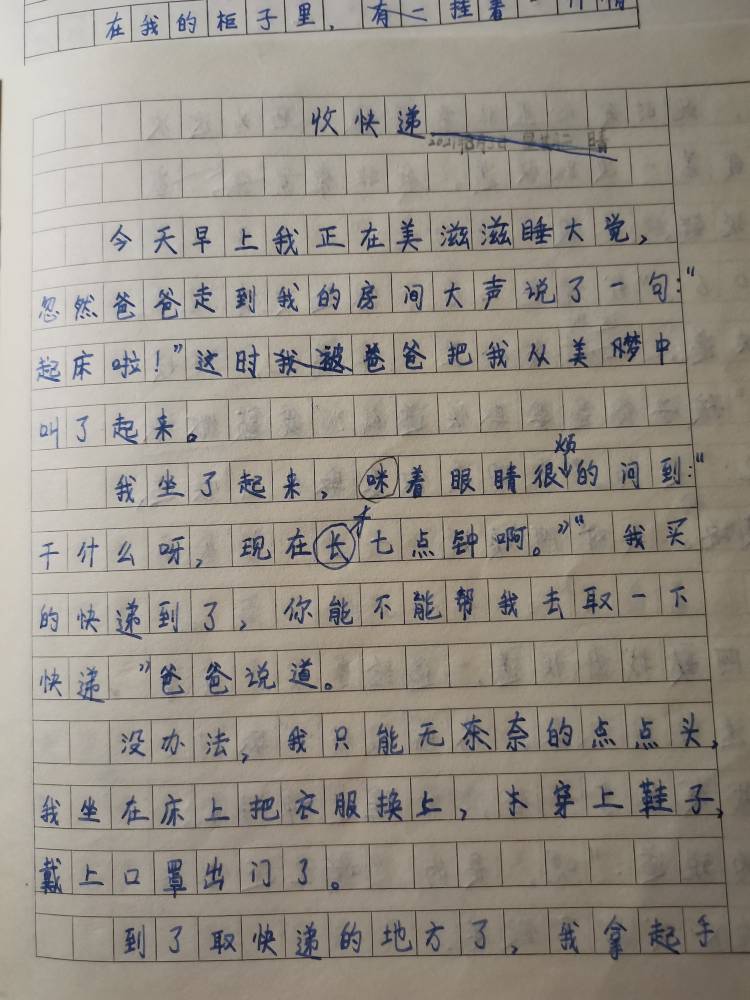 在我的柜子里，有一挂着一件
收快递
今天早上我正在美滋滋睡大觉，
忽然爸爸走到我的房间大声说了一句：“
起床啦！”这时我被爸爸把我从美梦中
叫了起来。
烦
我坐了起来，咪着眼睛很的问到：“
干什么呀，现在长七点钟啊。”“我买
的快递到了，你能不能帮我去取一下
快递。”爸爸说道。
没办法，我只能无奈奈的点点头，
我坐在床上把衣服换上，穿上鞋子，
戴上口罩出门了。
到了取快递的地方了，我拿起手